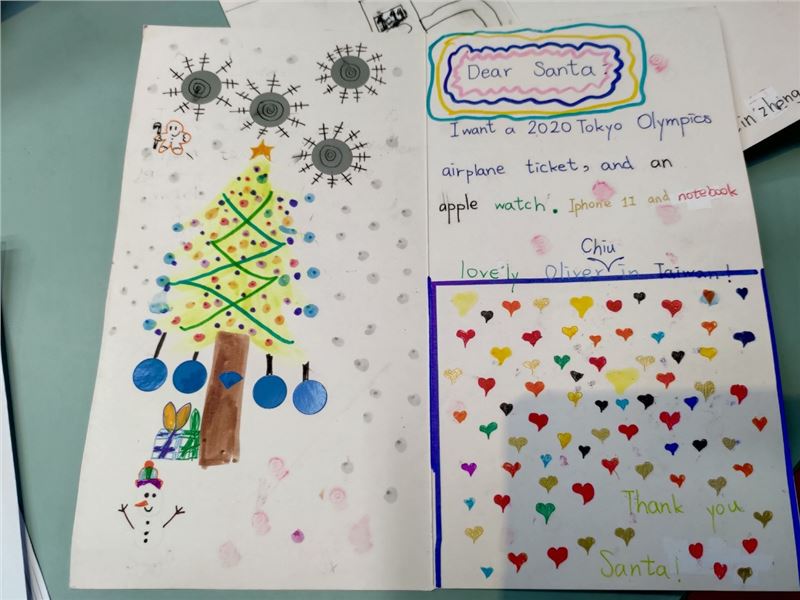 Dear Santa:
I want a 2020 Tokyo Olympics
airplane ticket, and an
apple watch. Iphone 11 and notebook
Chiu
lovely Oliver in Taiwan!
Thank you
Santa!